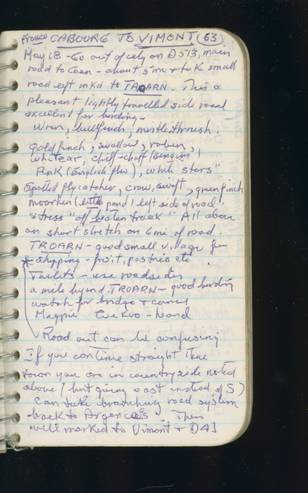 From CABOURG TO VIMONT (63)
May 18 - Go out of city on D513, main
road to Caen - about 3 mi & take small
road left mkd to TROARN. This is a
pleasant lightly travelled side road
excellent for birding.
Wren, bullfinch, mistle thrush,
goldfinch, swallow, robin,
whitear, chiff-chaff (singing)
Pink (English), white stars
Spotted flycatcher, crow, swift, greenfinch
moorhen (pond) left side of road
stress "off beaten track" All above
on short stretch on 6 mi of road.
TROARN - good small village for
shopping - fruit, pastries etc.
Toilets - use roadsides
a mile beyond TROARN - good birding
watch for bridge & canal
Magpie Cuckoo - heard
Road out can be confusing
if you continue straight thru
town you are in countryside noted
above (but going east instead of S)
Can take branching road system
back to Argences. Then
well marked to Vimont & D41